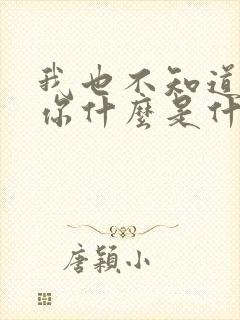 我也不知道
你什麼是什
唐穎小